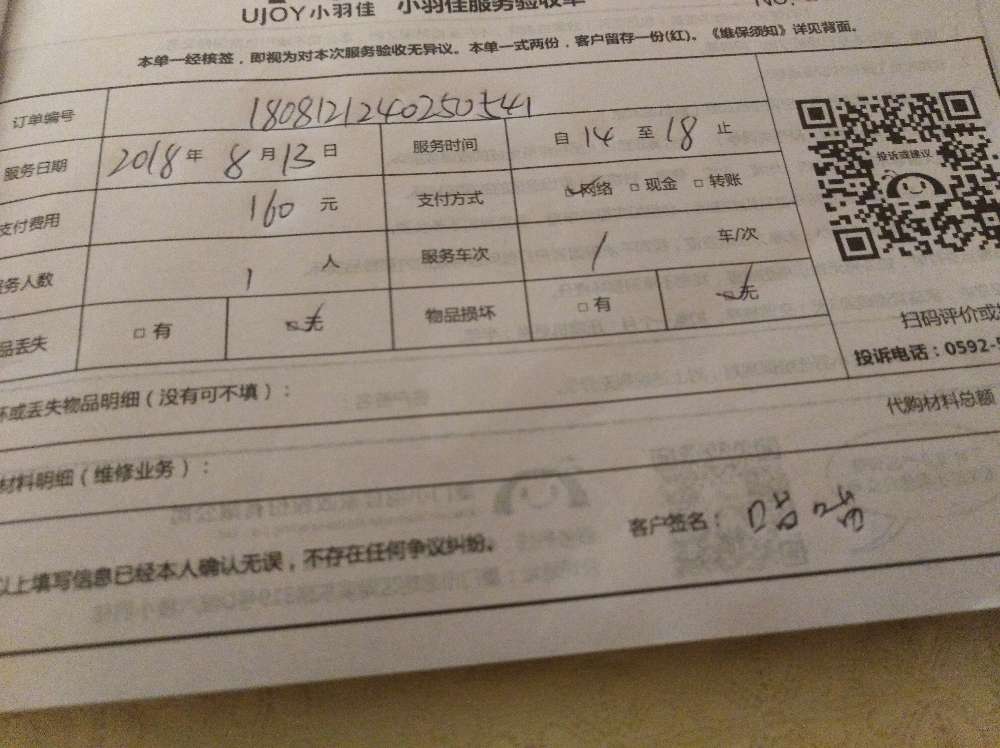 UJOY小羽佳 小羽佳服务验收单 No.
本单一经核签，即视为对本次服务验收无异议。本单一式两份，客户留存一份(红)。《维保须知》详见背面。
订单编号 1808121240250541
服务日期 2018年 8月13日 服务时间 自 14 至 18 止
支付费用 160 元 支付方式 网络 □ 现金 □ 转账
务人数 1 人 服务车次 1 车/次
品丢失 □ 有 无 物品损坏 □ 有 无
投诉或建议
扫码评价或
投诉电话：0592-5
坏或丢失物品明细（没有可不填）：
代购材料总额
材料明细（维修业务）：
以上填写信息已经本人确认无误，不存在任何争议纠纷。
客户签名：